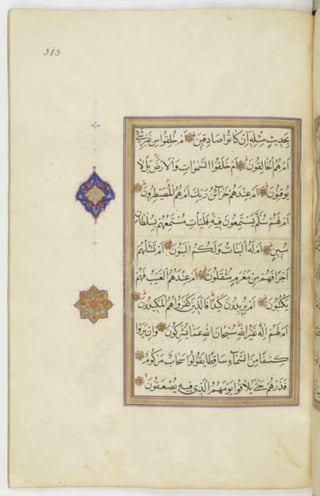 313
بحديث مثله ان كانوا صادقين ام خلقوا من غير شئ
ام هم الخالقون ام خلقوا السموات والارض بل لا
يوقنون ام عندهم خزائن ربك ام هم المصيطرون
ام لهم سلم يستمعون فيه فليأت مستمعهم بسلطان
مبين ام له البنات ولكم البنون ام تسئلهم
اجرا فهم من مغرم مثقلون ام عندهم الغيب فهم
يكتبون ام يريدون كيدا فالذين كفروا هم المكيدون
ام لهم اله غير الله سبحان الله عما يشركون وان يروا
كسفا من السماء ساقطا يقولوا سحاب مركوم
فذرهم حتى يلاقوا يومهم الذي فيه يصعقون